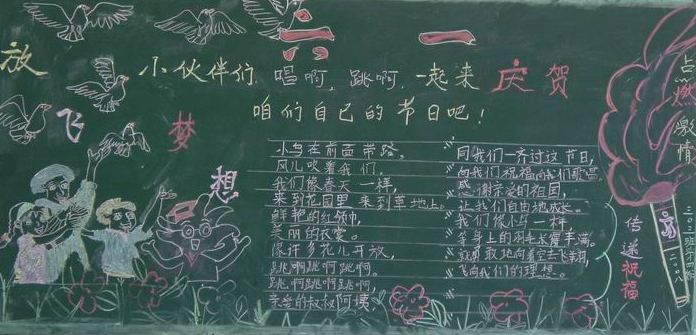 放飞梦想
六 一
小伙伴们,唱啊,跳啊,一起来庆贺
咱们自己的节日吧!
小鸟在前面带路,
风儿吹着我们,
我们像春天一样,
来到花园里 来到草地上。
鲜艳的红领巾,
美丽的衣裳。
像许多花儿开放,
跳啊跳啊跳啊,
跳啊跳啊跳啊,
亲爱的叔叔阿姨
同我们一齐过这节日,
向我们祝福向我们歌唱。
感谢亲爱的祖国,
让我们自由地成长。
我们像小鸟一样,
等身上的羽毛长丰满。
就勇敢地向着空去飞翔,
飞向我们的理想。
点燃激情
传递祝福
二〇〇八